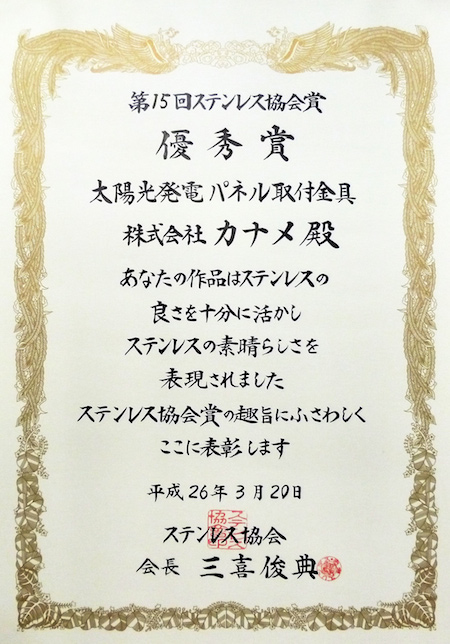 第15回ステンレス協会賞
優秀賞
太陽光発電パネル取付金具
株式会社 カナメ殿
あなたの作品はステンレスの
良さを十分に活かし
ステンレスの素晴らしさを
表現されました
ステンレス協会賞の趣旨にふさわしく
ここに表彰します
平成26年3月20日
ステンレス協会
会長 三喜俊典